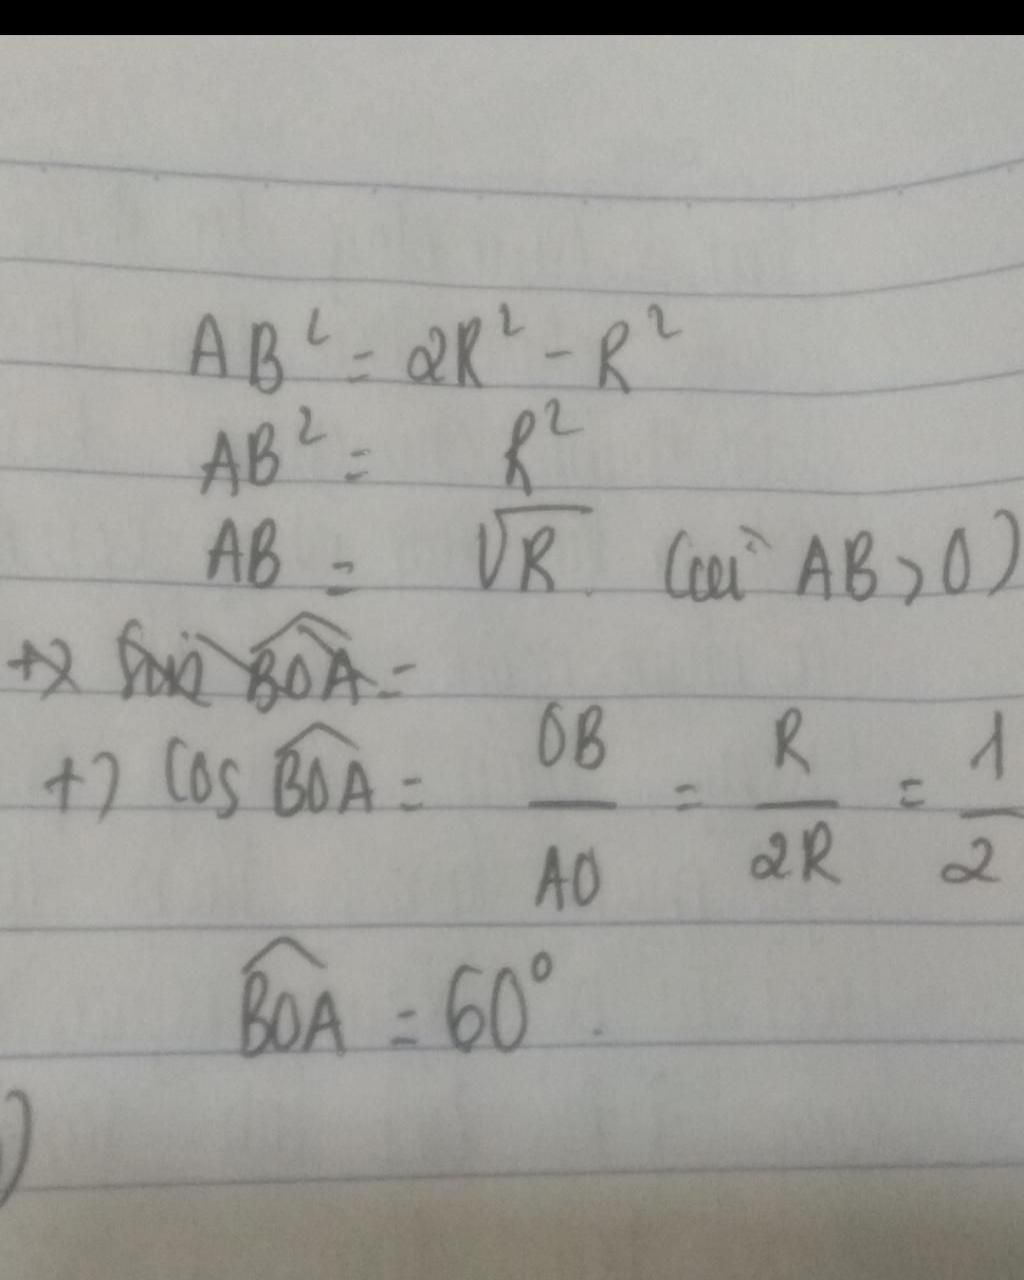 AB² = 2R² - R²
AB² = R²
AB = √R (vì AB > 0)
+) Sin BOA =
+) Cos BOA = OB/AO = R/2R = 1/2
BOA = 60°.
)